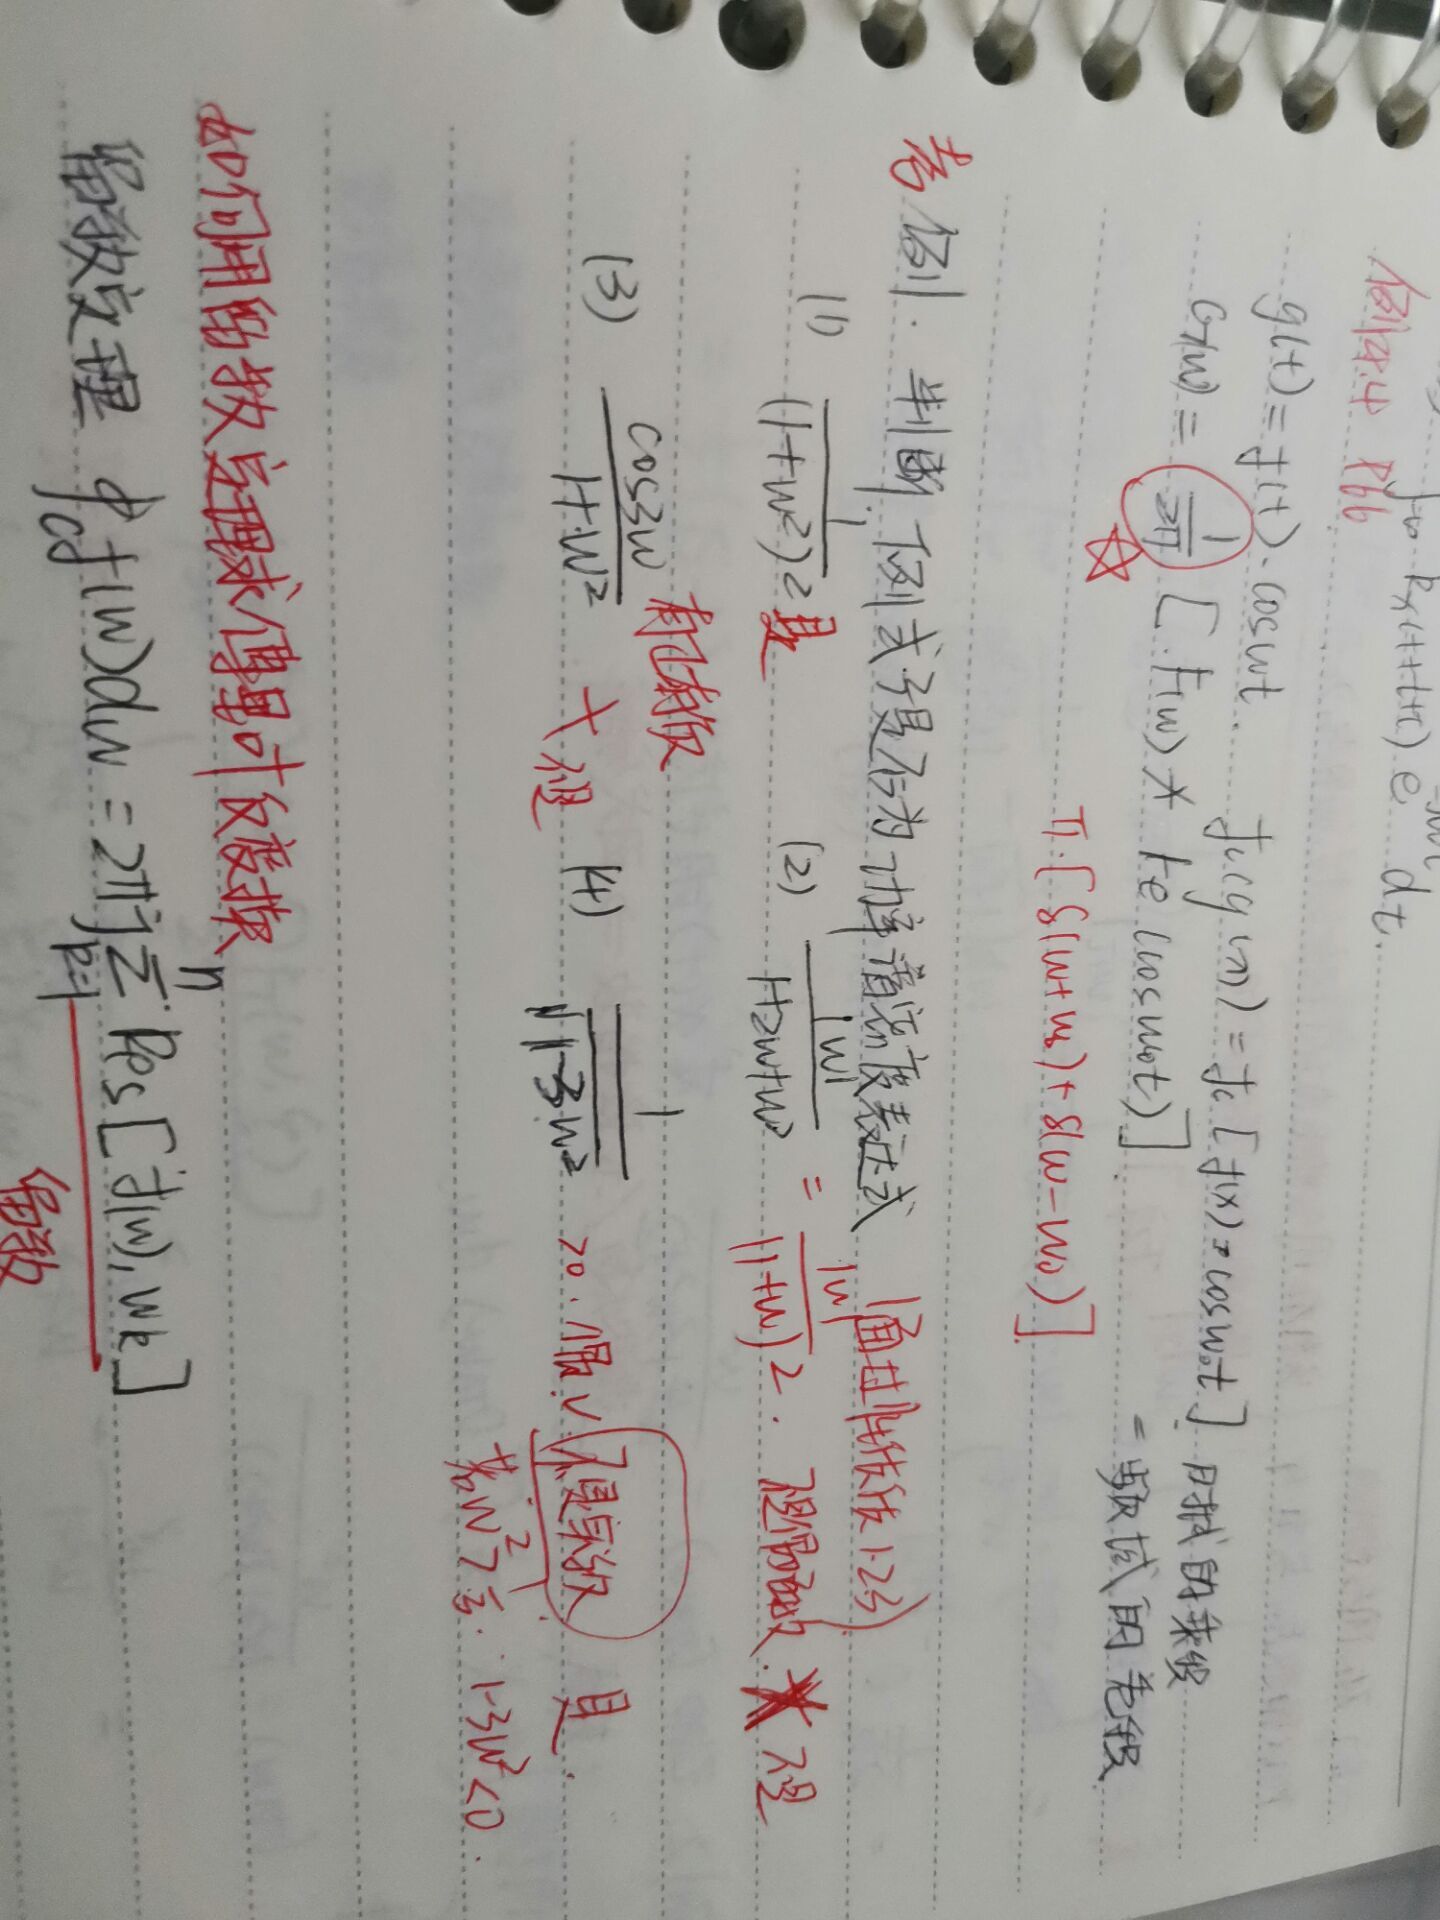 Rx(t,t+τ) e^{-jωτ} dt.
例4.4 P66
g(t)=f(t)·cosωt. Fc(g(x))=Fc[f(x)·cosω₀t] 时域的乘积
G(ω)= 1/2π [F(ω) * Fe(cosω₀t)]. =频域的卷积
π·[δ(ω+ω₀)+δ(ω-ω₀)]
考 例. 判断下列式子是否为功率谱密度表达式 (通过性质 1.2.3)
(1) 1/(1+ω²)² 是 (2) |ω|/(1+2ω+ω²) = |ω|/(1+ω)². 不是偶函数. 不是
(3) cos3ω/(1+ω²) 有正有负 × 不是 (4) 1/√(1-3ω²) >0. 偶.√ 不是实数 是.
若ω²>1/3. 1-3ω²<0.
如何用留数定理求傅里叶反变换
留数定理 ∮c f(ω)dω=2πj Σ_{k=1}^{n} Res[f(ω),ωk]
留数